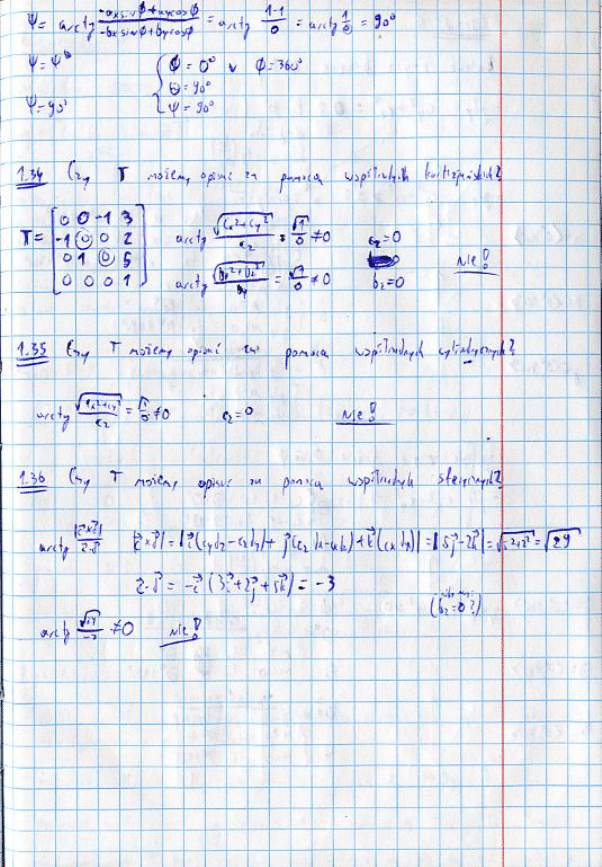 ψ = arctg (-ax sin ϕ + ay cos ϕ)/(-bx sin ϕ + by cos ϕ) = arctg (1·1)/0 = arctg 1/0 = 90°
ϕ = 0° v ϕ = 360°
Θ = 90°
ψ = 90° ψ = 90°
1.34 Czy T możemy opisać za pomocą współrzędnych kartezjańskich?
T = [0 0 -1 3
-1 0 0 2
0 1 0 5
0 0 0 1]
arctg √(cx²+cy²)/cz = √1/0 ≠ 0 cz = 0
arctg = √1/0 ≠ 0 bz = 0 Nie!
1.35 Czy T możemy opisać za pomocą współrzędnych cylindrycznych?
arctg √(cx²+cy²)/cz = √1/0 ≠ 0 cz = 0 Nie!
1.36 Czy T możemy opisać za pomocą współrzędnych sferycznych?
arctg = |5j - 2k| = √29
= -i (3i + 2j + 5k) = -3
(bz = 0?)
arctg √29/-3 ≠ 0 Nie!